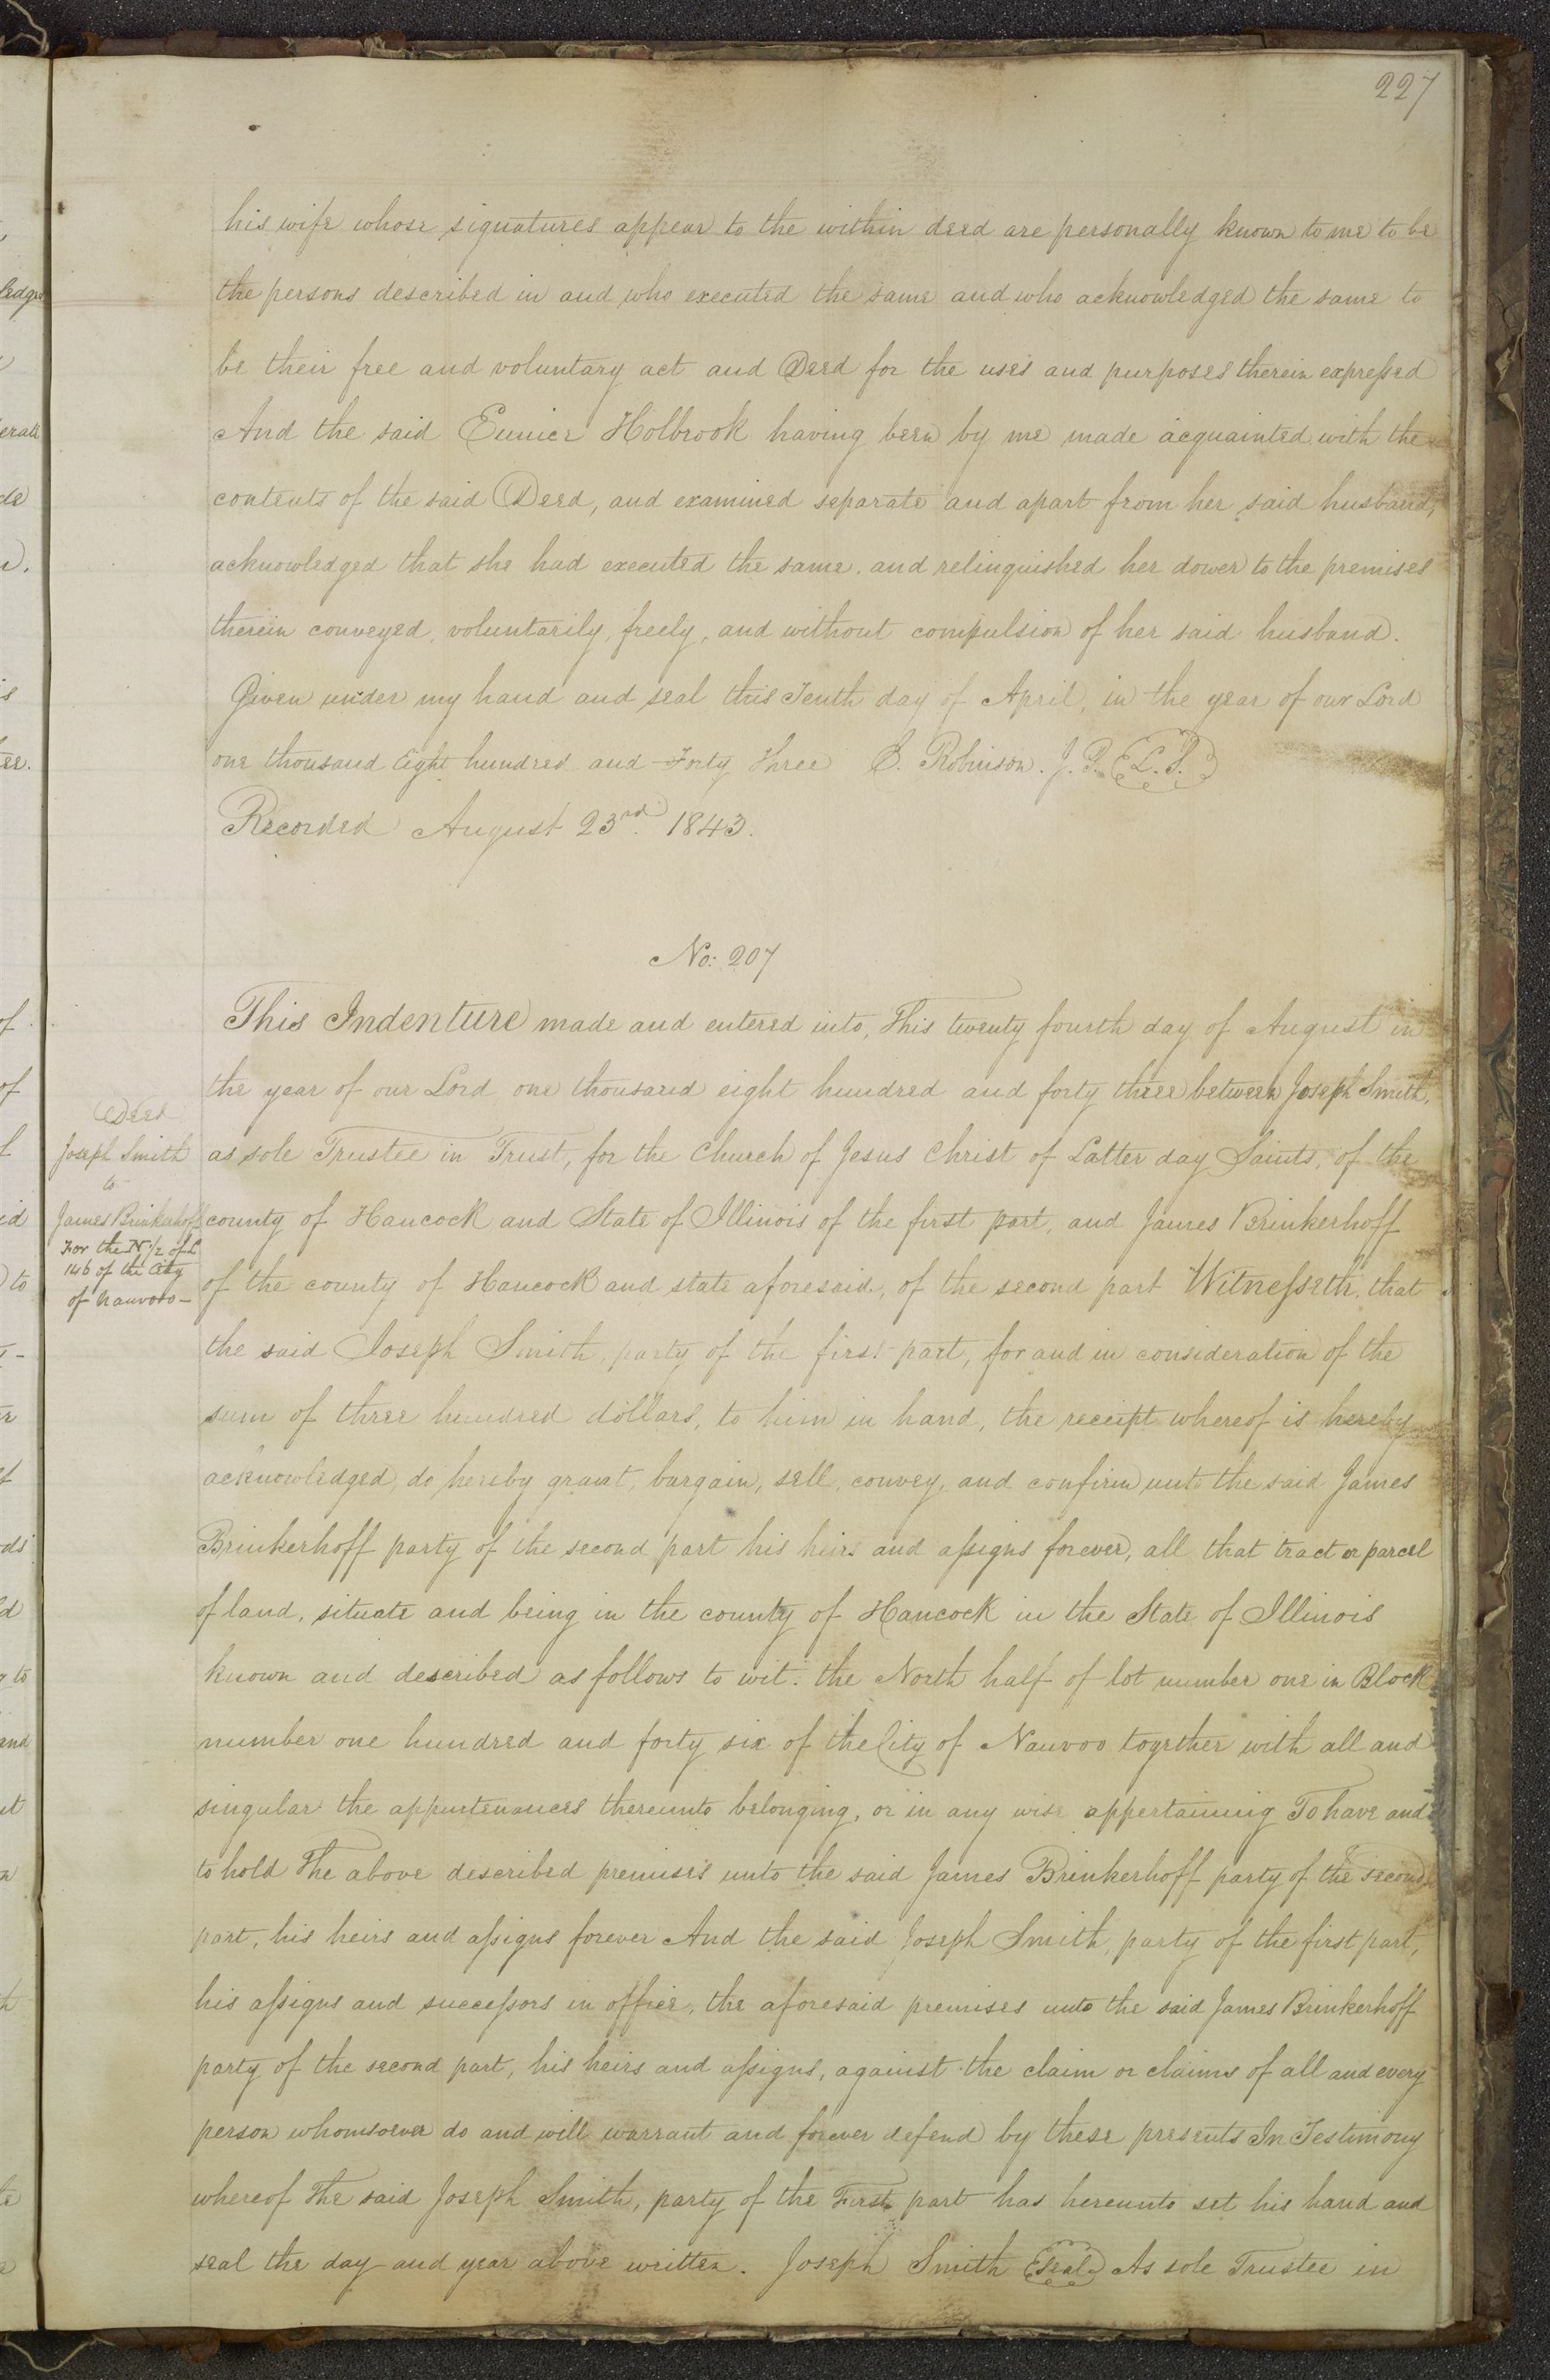 227
his wife whose signatures appear to the within deed are personally known to me to be
the persons described in and who executed the same and who acknowledged the same to
be their free and voluntary act and Deed for the uses and purposes therein expressed
And the said Eunice Holbrook having been by me made acquainted with the
contents of the said Deed, and examined separate and apart from her said husband,
acknowledged that she had executed the same, and relinquished her dower to the premises
therein conveyed, voluntarily, freely, and without compulsion of her said husband.
Given under my hand and seal this Tenth day of April, in the year of our Lord
one thousand Eight hundred and Forty Three E. Robinson. J. P. L. S.
Recorded August 23rd. 1843.
No: 207
This Indenture made and entered into, This twenty fourth day of August in
the year of our Lord one thousand eight hundred and forty three between Joseph Smith,
as sole Trustee in Trust, for the Church of Jesus Christ of Latter day Saints, of the
county of Hancock and State of Illinois of the first part, and James Brinkerhoff
of the county of Hancock and state aforesaid, of the second part Witnesseth, that
the said Joseph Smith, party of the first part, for and in consideration of the
sum of three hundred dollars, to him in hand, the receipt whereof is hereby
acknowledged, do hereby grant, bargain, sell, convey, and confirm unto the said James
Brinkerhoff party of the second part his heirs and assigns forever, all that tract or parcel
of land, situate and being in the county of Hancock in the State of Illinois
known and described as follows to wit: the North half of lot number one in Block
number one hundred and forty six of the City of Nauvoo together with all and
singular the appurtenances thereunto belonging, or in any wise appertaining To have and
to hold The above described premises unto the said James Brinkerhoff party of the second
part, his heirs and assigns forever And the said Joseph Smith, party of the first part,
his assigns and successors in office, the aforesaid premises unto the said James Brinkerhoff
party of the second part, his heirs and assigns, against the claim or claims of all and every
person whomsoever do and will warrant and forever defend by these presents In Testimony
whereof The said Joseph Smith, party of the First part has hereunto set his hand and
seal the day and year above written. Joseph Smith Seal As sole Trustee in
Deed
Joseph Smith
to
James Brinkerhoff
For the N 1/2 of L
146 of the City
of Nauvoo –